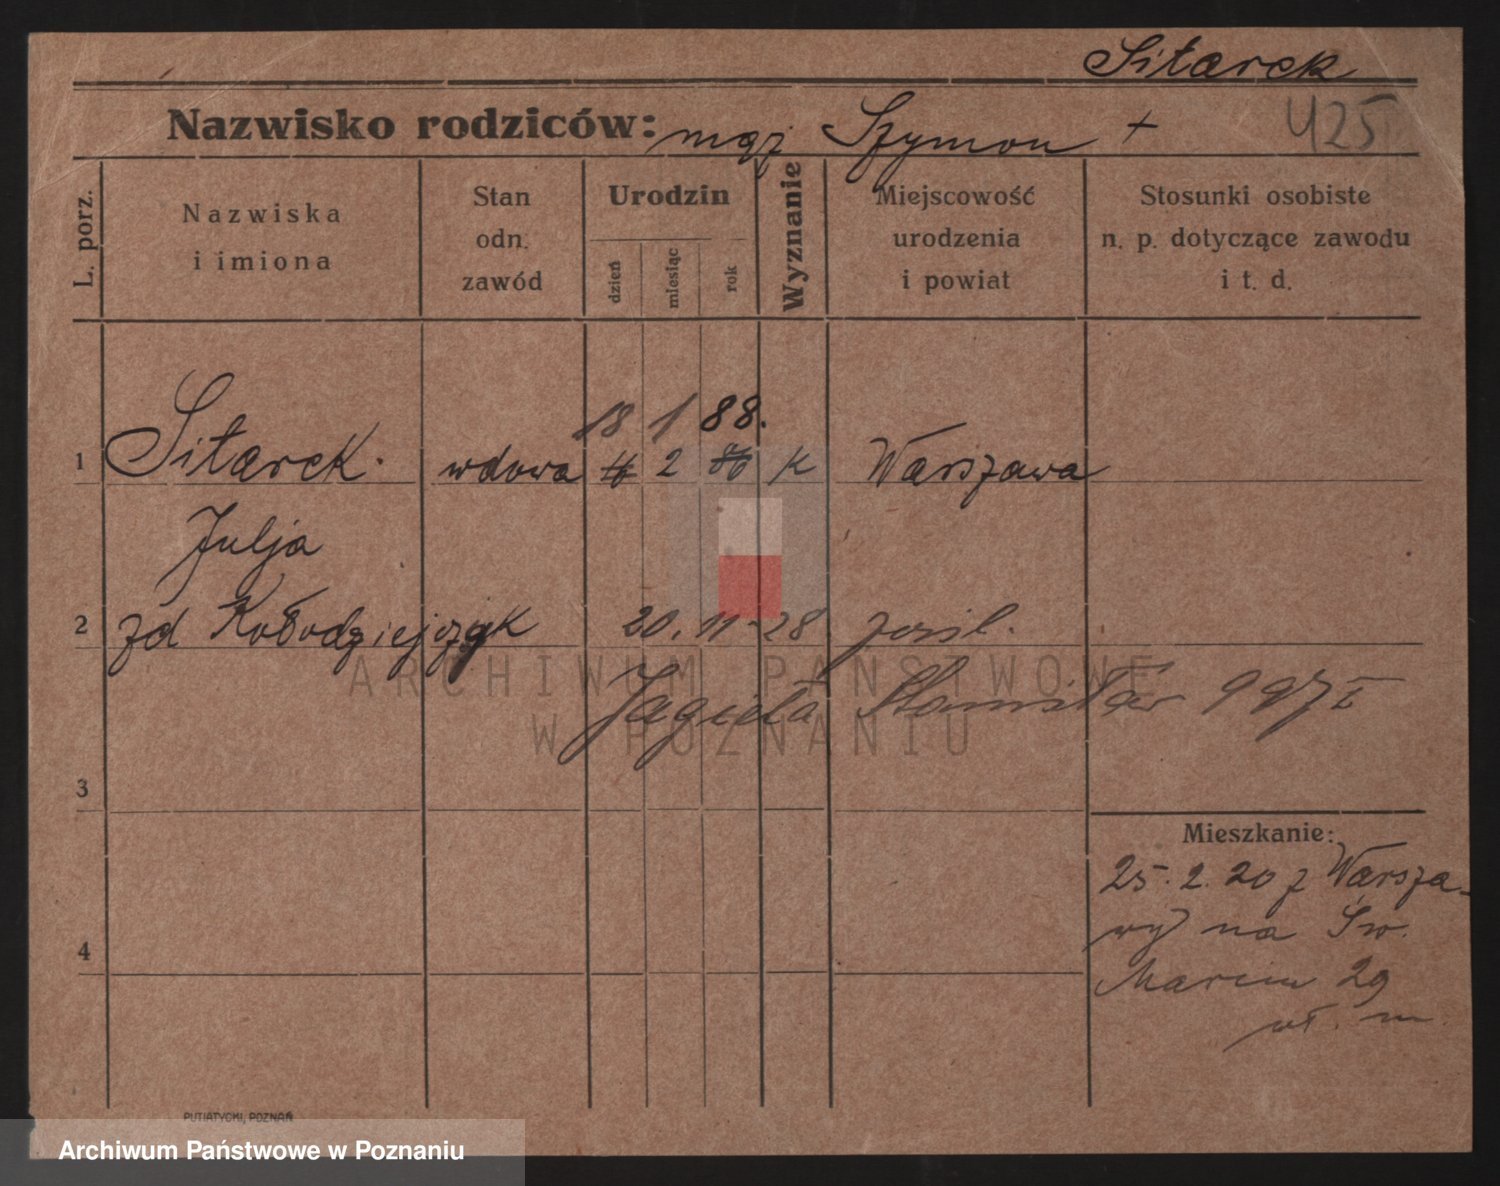 Sitarek
Nazwisko rodziców: mąż Szymon +
425
L. porz.
Nazwiska
i imiona
Stan
odn.
zawód
Urodzin
dzień
miesiąc
rok
Wyznanie
Miejscowość
urodzenia
i powiat
Stosunki osobiste
n. p. dotyczące zawodu
i t. d.
18 1 88.
1 Sitarek. wdowa 2 K Warszawa
Julja
2 zd Kołodziejczyk 20. 11 - 28 zaśl.
Jagieła Stanisław 997 I
3
Mieszkanie:
25. 2. 20 z Warsza-
wy na Św.
4
Marcin 29
wł. m.
PUTIATYCKI, POZNAŃ
ARCHIWUM PAŃSTWOWE
W POZNANIU
Archiwum Państwowe w Poznaniu